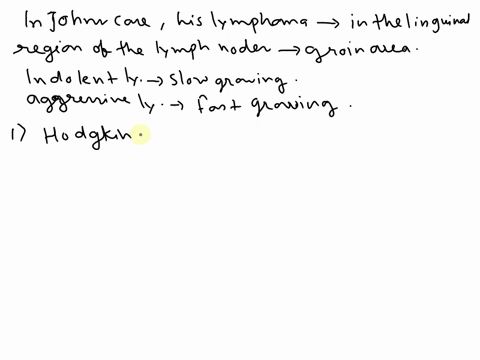 In John case, his lymphoma → in the linguinal
region of the lymph nodes → groin area.
Indolent ly. → slow growing.
aggressive ly. → fast growing.
1) Hodgkin.